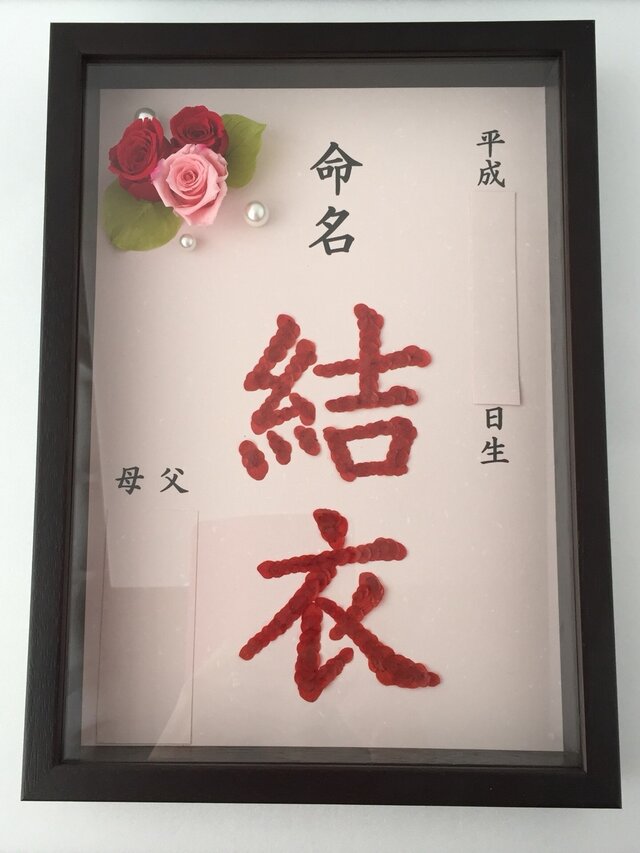 平成
日生
命名
結衣
父
母